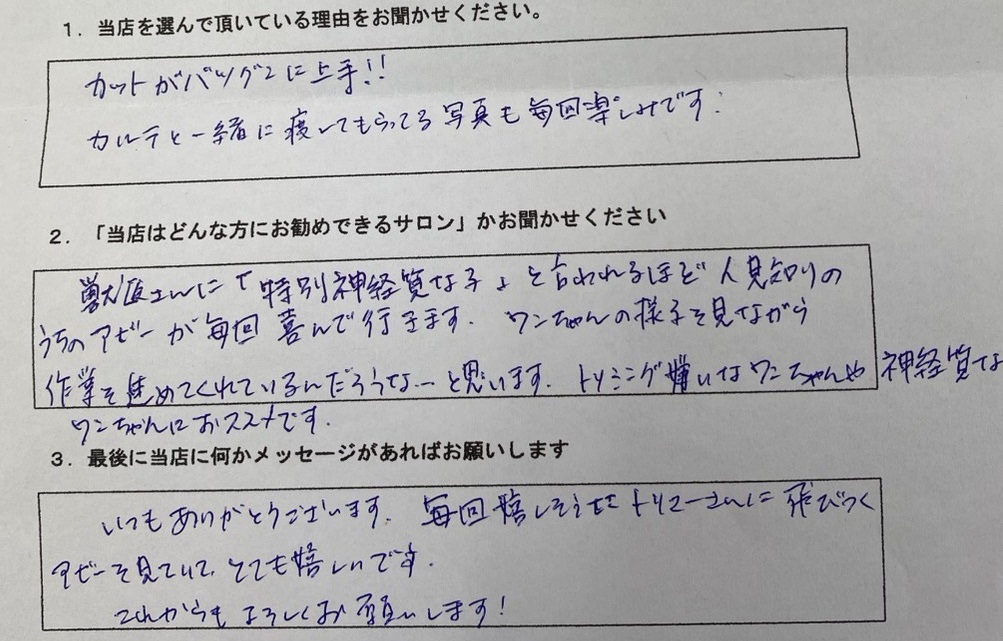 1. 当店を選んで頂いている理由をお聞かせください。
カットがバツグンに上手!!
カルテと一緒に渡してもらってる写真も毎回楽しみです!
2. 「当店はどんな方にお勧めできるサロン」かお聞かせください
獣医さんに「特別神経質な子」と言われるほど人見知りの
うちのアビーが毎回喜んで行きます. ワンちゃんの様子を見ながら
作業を進めてくれているんだろうな…と思います. トリミング嫌いなワンちゃんや神経質な
ワンちゃんにおススメです.
3. 最後に当店に何かメッセージがあればお願いします
いつもありがとうございます. 毎回嬉しそうに トリマーさんに飛びつく
アビーを見ていて, とても嬉しいです.
これからもよろしくお願いします!